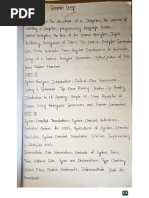 Compiler Design
UNIT-I
Introduction: The structure of a Compiler, the science of
building a compiler, programming language basics
Lexical Analysis: The Role of the Lexical Analyzer, Input
Buffering, Recognition of Tokens, The Lexical Analyzer
Finite Automata, From Regular Expressions to Automata,
Design of a Lexical Analyzer Generator, Optimization of DFA
Based Pattern Matchers
UNIT-II
Syntax Analysis: Introduction, Context Free Grammars,
Writing a Grammar, Top Down Parsing, Bottom Up Parsing
Introduction to LR Parsing: Simple LR, More Powerful LR
Parsers, Using Ambiguous Grammars and Parser Generators
UNIT-III
Syntax Directed Translation: Syntax Directed Definitions,
Evaluation Orders for SDD's, Applications of Syntax Directed
Translation, Syntax Directed Translation Schemes, Implementing
L-Attributed SDD's
Intermediate Code Generation: Variants of Syntax Trees,
Three Address Code, Types and Declarations, Type Checking,
Control Flow, Switch Statements, Intermediate Code for
Procedures